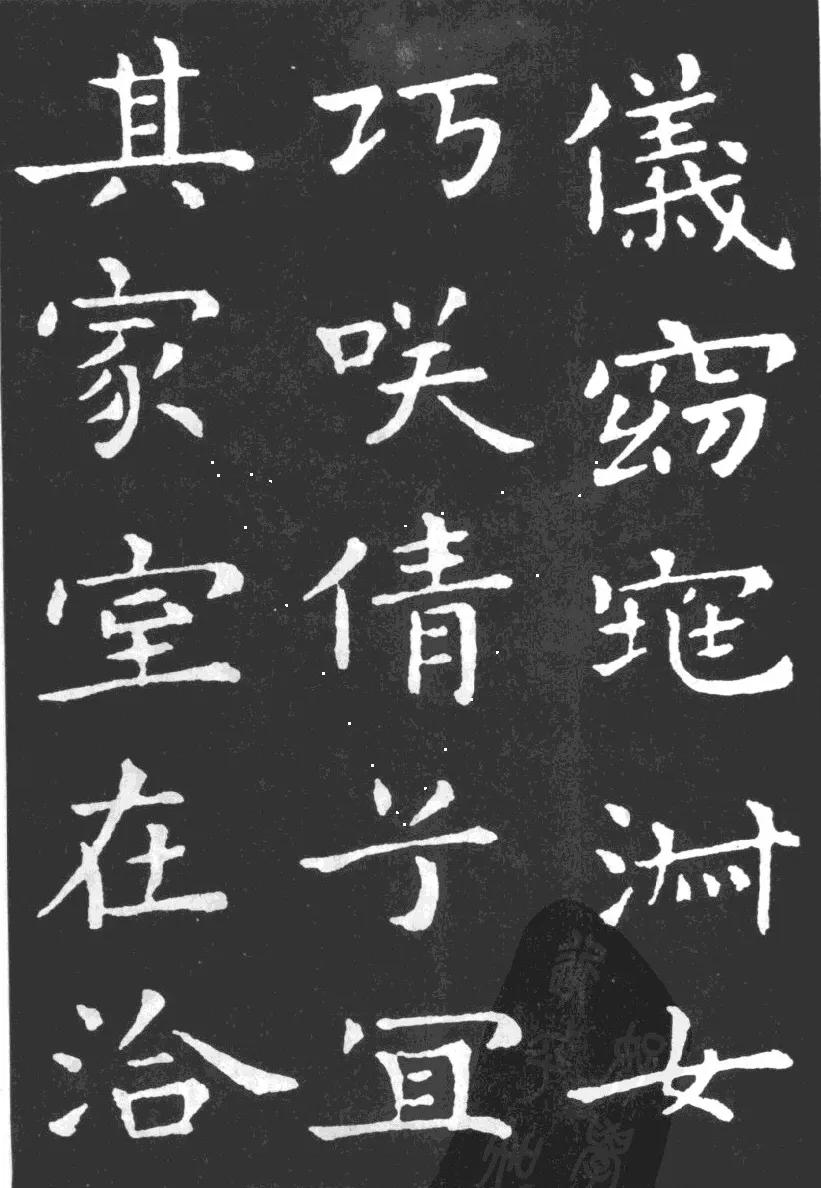 儀窈窕淑女
巧咲倩兮宜
其家室在洽